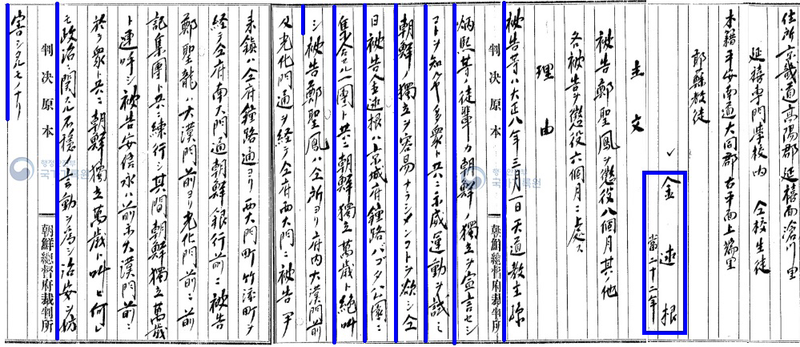 住所京畿道高陽郡延禧面滄川里
延禧専門學校内 仝校生徒
本籍平安南道大同郡古平面上端里
耶蘇教徒
金逑根
當二十二年
主文
被告鄭聖鳳ヲ懲役八個月其ノ他
各被告ヲ懲役六個月ニ處ス
理由
被告等ハ大正八年三月一日天道教主孫
判決原本
朝鮮總督府裁判所
炳熙等ノ徒輩カ朝鮮ノ獨立ヲ宣言セシ
コトヲ知ルヤ多衆ト共ニ示威運動ヲ試ミ
朝鮮獨立ヲ容易ナラシメンコトヲ欲シ仝
日被告金逑根ハ京城府鐘路パゴダ公園ニ
集合セル一團ト共ニ朝鮮獨立萬歳ト絶叫
シ被告鄭聖鳳ハ仝所ヨリ府内大漢門前
及光化門通ヲ経テ仝府西大門ニ被告尹
来鎮ハ仝府鐘路通ヨリ西大門町竹添町ヲ
経テ仝府南大門通朝鮮銀行前ニ被告
鄭聖龍ハ大漢門前ヨリ光化門前ニ前
記集團ト共ニ練行シ其間朝鮮獨立萬歳
ト連呼シ被告永ハ前示大漢門前ニ
於テ衆ト共ニ朝鮮獨立萬歳ト叫ヒ何レ
モ政治ニ関スル不穏ノ言動ヲ為シ治安ヲ妨
判決原本
朝鮮總督府裁判所
害シタルモノナリ
국가기록원